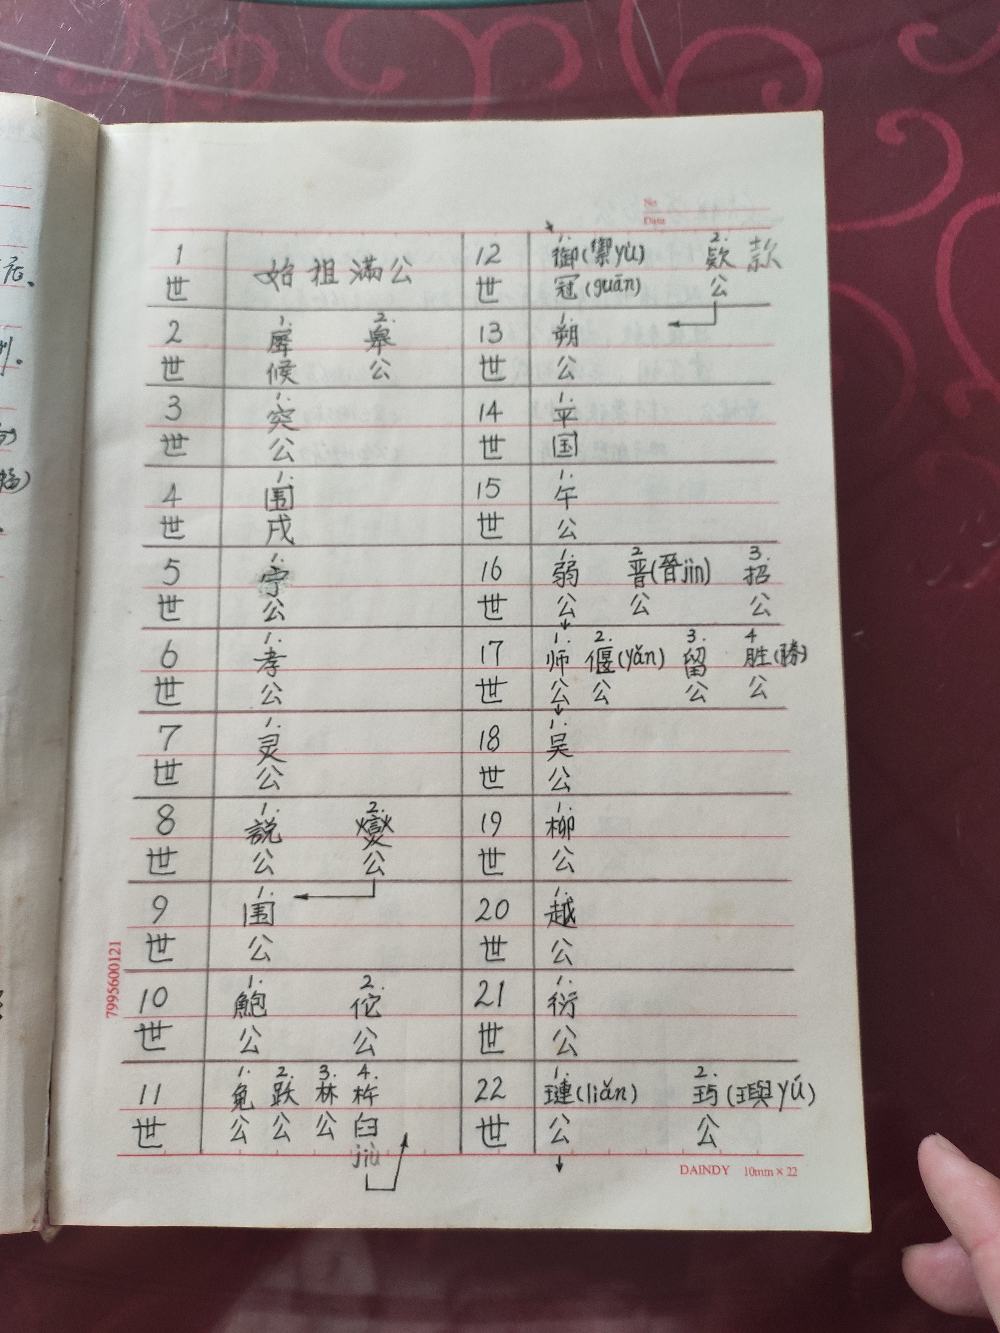 No
Date
1世 始祖滿公
2世 1.犀候 2.皋公
3世 1.突公
4世 1.围戎
5世 1.宁公
6世 1.孝公
7世 1.灵公
8世 1.説公 2.燮公
9世 1.围公
10世 1.鮑公 2.佗公
11世 1.兔公 2.跃公 3.林公 4.杵臼 jiù
12世 1.御(禦yù)冠(guān) 2.欵公 款
13世 1.朔公
14世 1.平国
15世 1.午公
16世 1.弱公 2.晋(晉jìn)公 3.招公
17世 1.师公 2.偃(yǎn)公 3.留公 4.胜(勝)公
18世 1.吴公
19世 1.柳公
20世 1.越公
21世 1.衍公
22世 1.璉(liǎn)公 2.玙(璵yú)公
7995600121
DAINDY 10mm×22